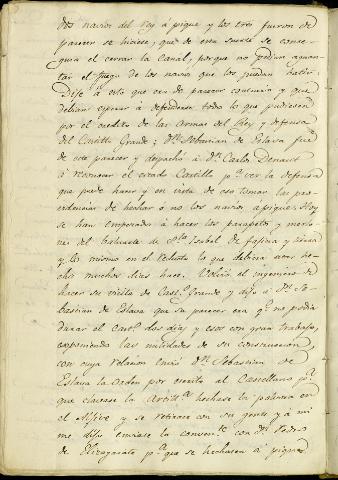 dos navios del Rey á pique y los tres fueron de
parecer se hiciese, que de esta suerte se conse-
guia el cerrar la canal, porque no podian aguan-
tar el fuego de los navios que los puedan batir.
Dije á esto que era de parecer contrario y que
debian esperar á defenderse todo lo que pudiesen
por el credito de las armas del Rey y defensa
del Castillo Grande; Dn. Sebastian de Eslava fué
de este parecer y despachó á Dn. Carlos Denaut
á reconocer el citado Castillo pa. ver la defensa
que puede hacer y en vista de eso tomar las pro-
videncias de hechar ó no los navios á pique. Hoy
se han empezado á hacer los parapetos y merlo-
nes del baluarte de Sta. Isabel de fagina y
y lo mismo en el Reducto lo que debiera estar he-
cho muchos dias hace. Volvió el ingeniero de
hacer su visita de Casto. Grande y dijo á Dn. Se-
bastian de Eslava que su parecer era qe. no podia
durar el Casto. dos dias y esos con gran trabajo,
exponiendo las nulidades de su construccion,
con cuya relacion envió Dn. Sebastian de
Eslava la orden por escrito al Castellano pa.
que clavase la Artilla. hechase la polvora en
el Algive y se retirase con su gente y á mi
me dijo enviase la convente. con Dn. Pedro
de Elizagarate pa. que se hechasen á pique